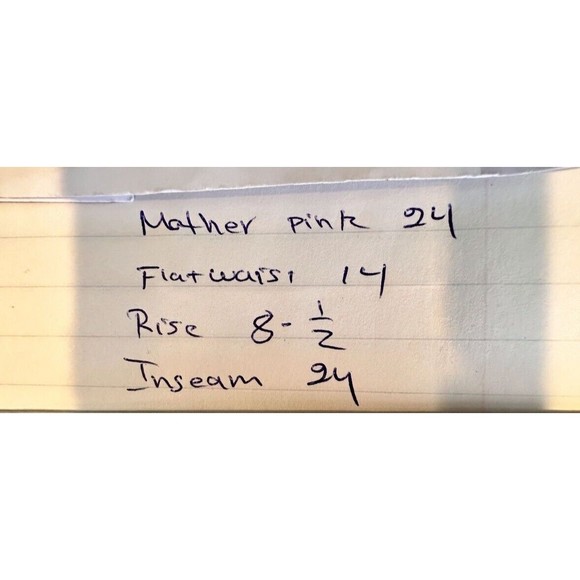 Mother pink 24
Flat waist 14
Rise 8-1/2
Inseam 24